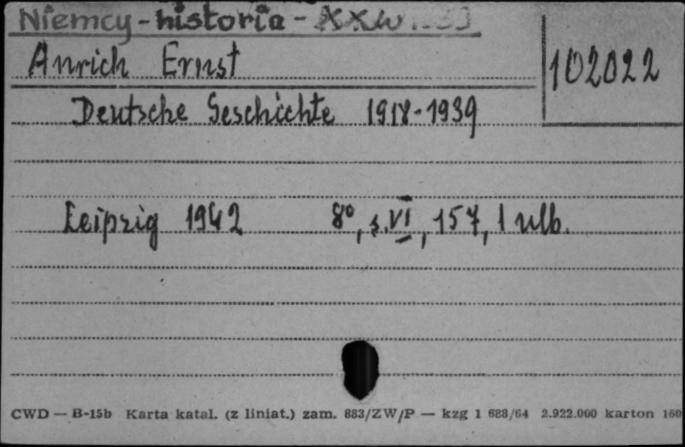 Niemcy - historia - XXw
Anrich Ernst
102022
Deutsche Geschichte 1918-1939
Leipzig 1942 8º, s. VI, 157, 1 nlb.
CWD — B-15b Karta katal. (z liniat.) zam. 883/ZW/P — kzg 1 688/64 2.922.000 karton 160